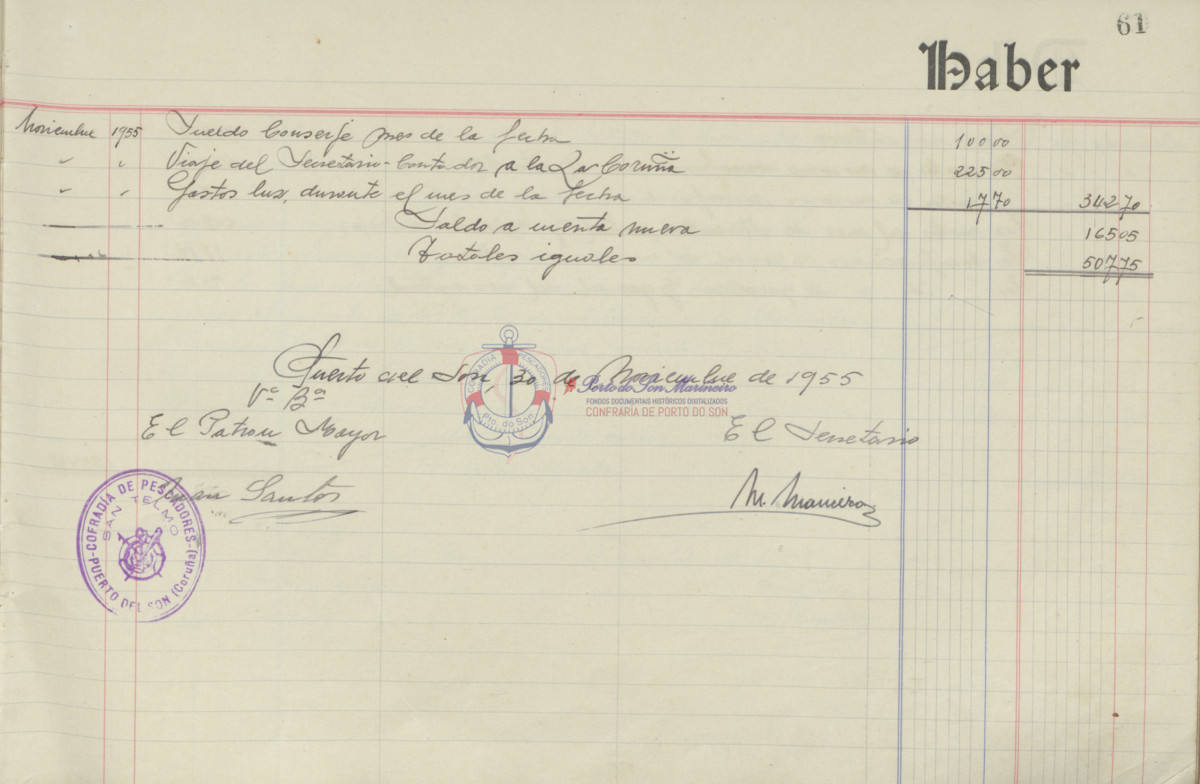 61
Haber
Noviembre 1955 Sueldo Conserje mes de la fecha 100 00
" " Viaje del Secretario-Contador a la La Coruña 225 00
" " Gastos luz, durante el mes de la fecha 17 70 342 70
Saldo a cuenta nueva 165 05
Totales iguales 507 75
Puerto del Son, 30 de Noviembre de 1955
Vº Bº
El Patron Mayor El Secretario
Santos M.
COFRADIA DE PESCADORES
Pto. do Son
Porto do Son Mariñeiro
FONDOS DOCUMENTAIS HISTÓRICOS DIGITALIZADOS
CONFRARÍA DE PORTO DO SON
COFRADÍA DE PESCADORES
SAN TELMO
PUERTO DEL SON (Coruña)